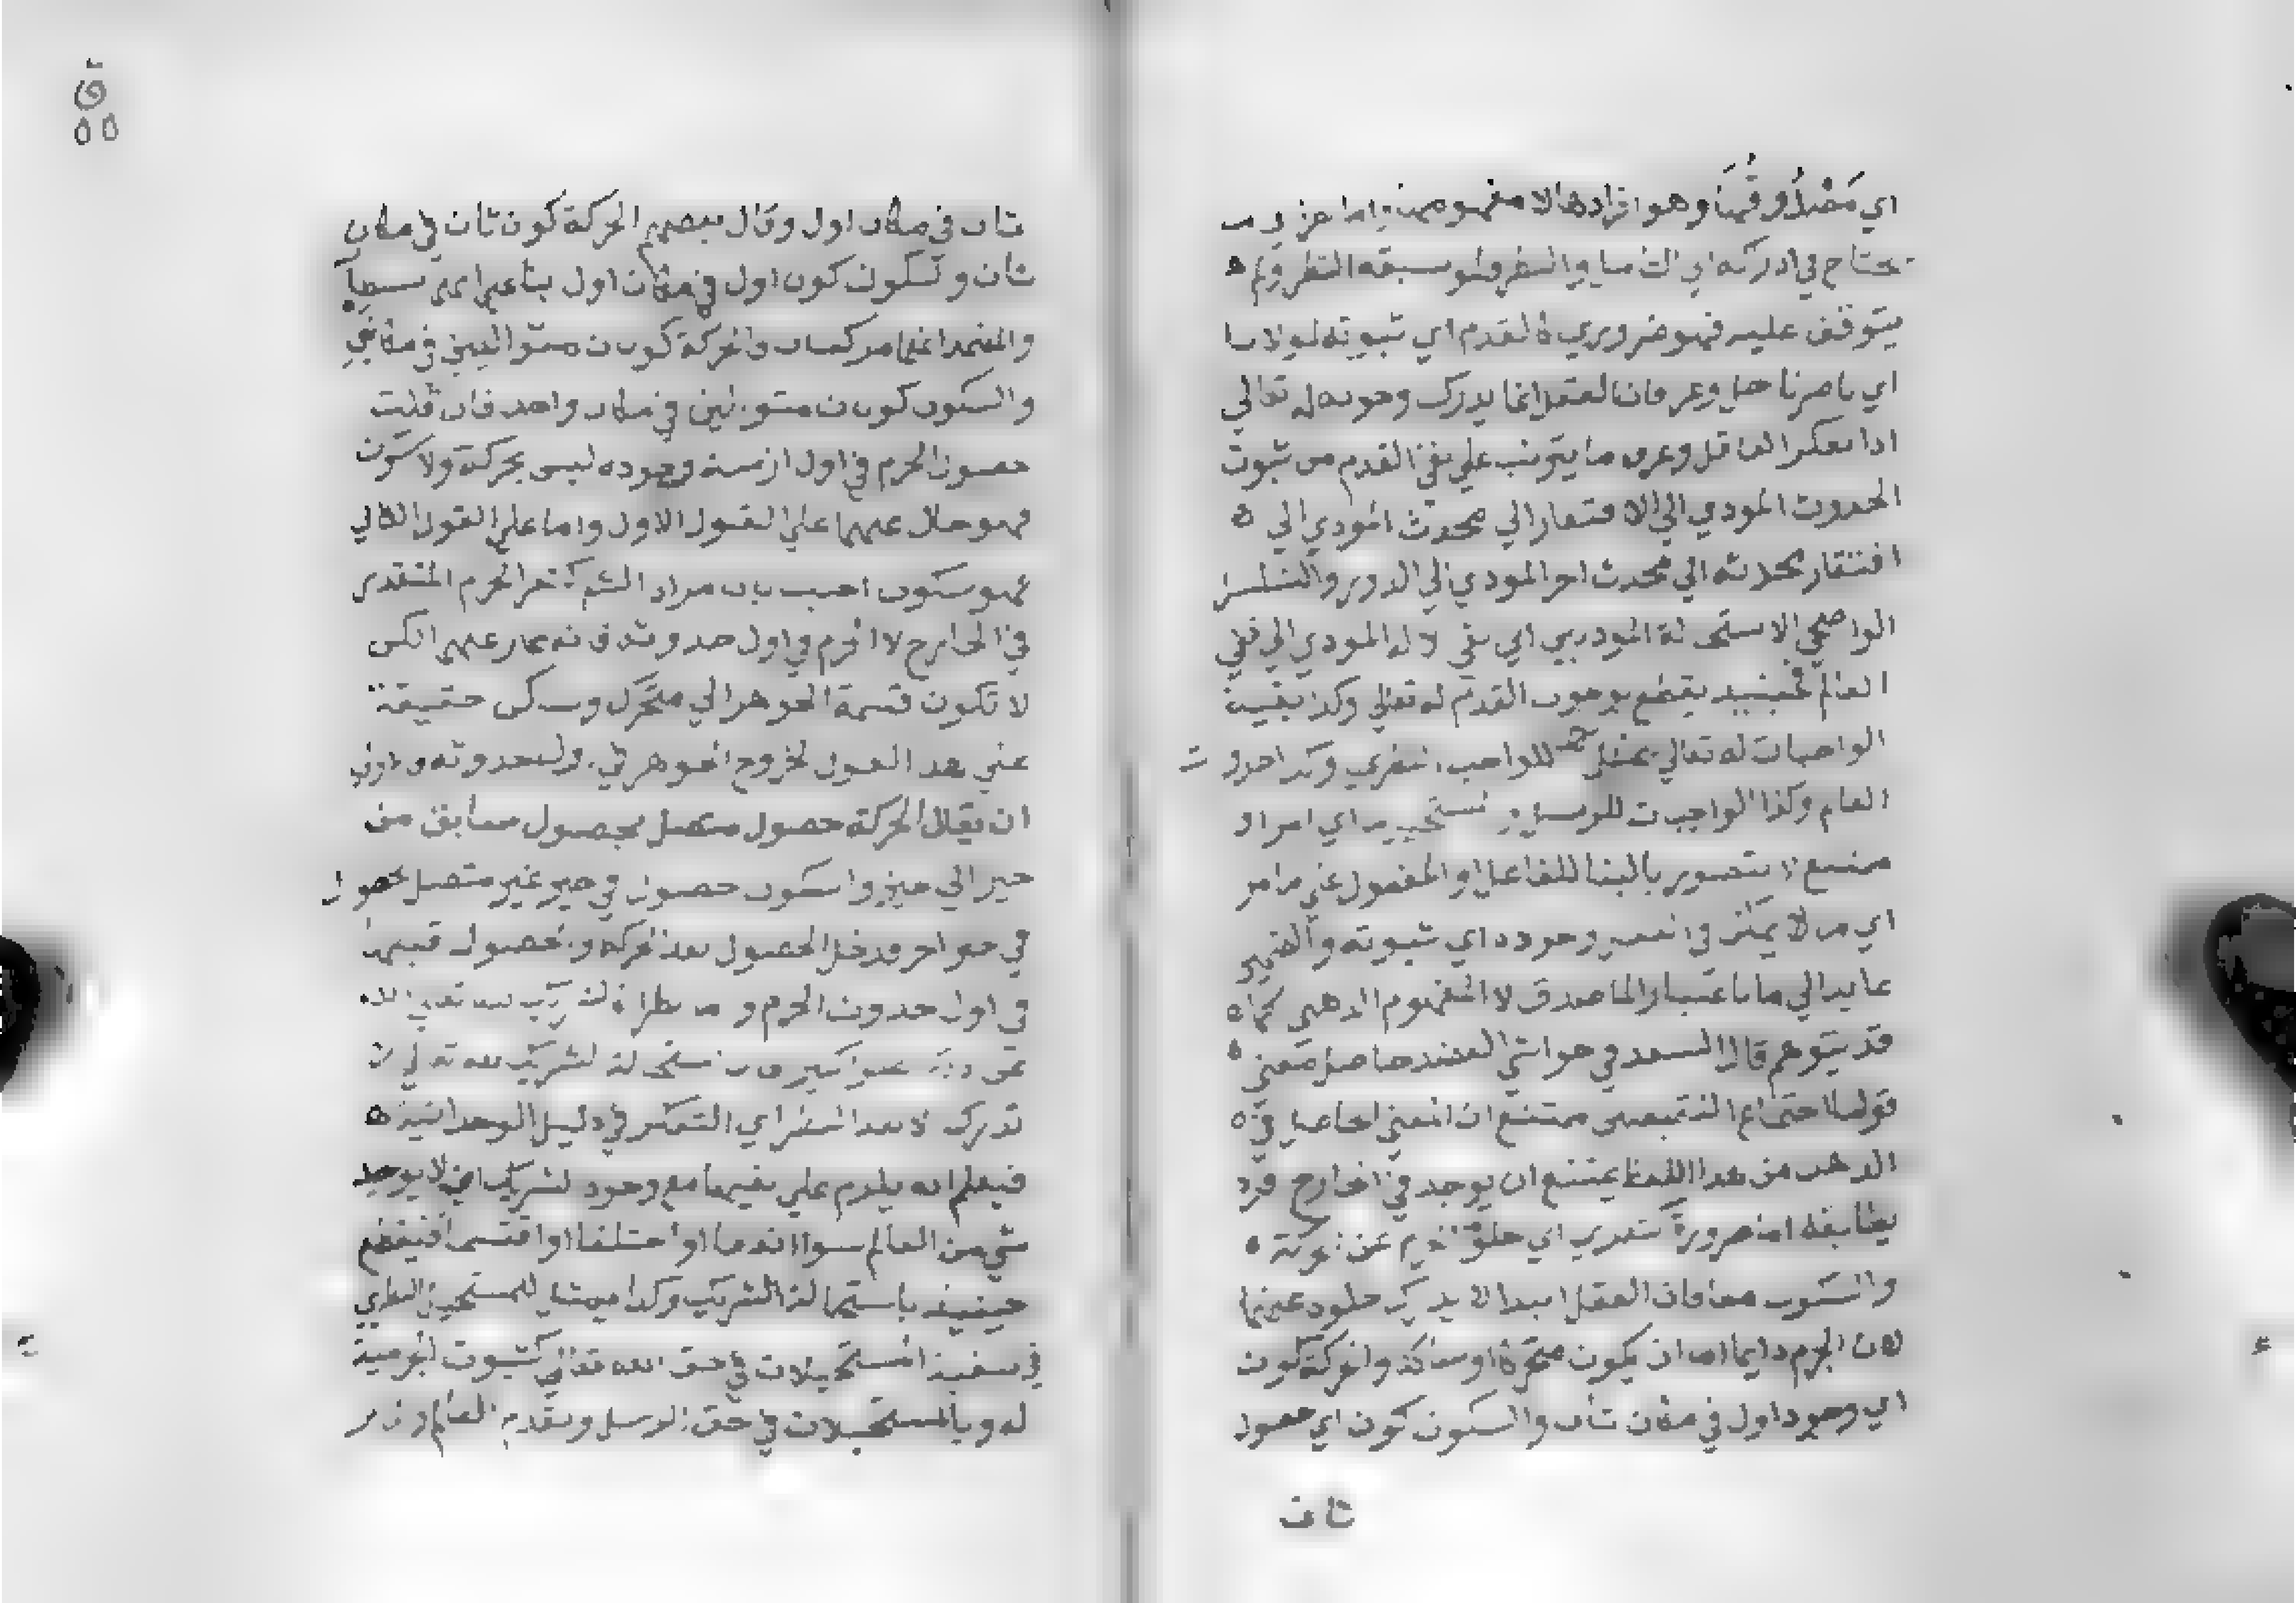 اي مصدوقها وهو افرادها لا مفهومها واما
يحتاج في ادراكه اي التامل والنظر ولو سبقه النظر ولم
يتوقف عليه فهو ضروري كالقدم اي ثبوته لمولانا
اي ناصرنا جل وعز فان العقل انما يدرك وجوبه له تعالي
اذا تفكر العاقل وعرف ما يترتب علي نفي القدم من ثبوت
الحدوث المودي الي الافتقار الي محدث المودي الي
افتقار محدثه الي محدث اخر المودي الي الدور والتسلسل
الواضحي الاستحالة المودي اي نفي الاله المودي الي نفي
العالم فحينيذ يقطع بوجوب القدم له تعالي وكذا بقية
الواجبات له تعالي للواجب النظري وكذا حدوث
العالم وكذا الواجبات للرسل اي امر او
ممتنع لا يتصور بالبنا للفاعل او المفعول علي ما مر
اي ما لا يمكن في العقل وجوده اي ثبوته والضمير
عايد الي ما باعتبار الماصدق لا المفهوم الذهني كما
قد يتوهم قال السعد في حواشي العضد حاصل معني
قولنا اجتماع النقيضين ممتنع ان المعني الحاصل في
الذهن من هذا اللفظ يمتنع ان يوجد في الخارج فرد
يطابقه اما ضرورة كتعري اي خلو الجرم عن الحركة
والسكون معا فان العقل ابتدا لا يدرك خلوه عنهما
لان الجرم دايما اما ان يكون متحركا او ساكنا والحركة كون
اي وجود اول في مكان ثان والسكون كون اي حصول
ثان
ق
٥٥
ثان في مكان اول وقال بعضهم الحركة كون ثان في مكان
ثان والسكون كون اول في مكان اول بنا علي انهما بسيطان
والمعتمد انهما مركبان والحركة كونان متواليين في مكانين
والسكون كونان متواليين في مكان واحد فان قلت
حصول الجرم في اول ازمنة وجوده ليس بحركة ولا سكون
فهو خال عنهما علي القول الاول واما علي القول الثاني
فهو سكون اجيب بان مراد الشم كتعر الجرم المتقدم
في الخارج لا الجرم في اول حدوثه فانه عار عنهما لكن
لا تكون قسمة الجوهر الي متحرك وساكن حقيقة
علي هذا القول لخروج الجوهر في اول حدوثه والاولي
ان يقال الحركة حصول متصل بحصول سابق من
حيز الي حيز والسكون حصول في حيز غير متصل بحصول
في حيز اخر فدخل الحصول بعد الحركة والحصول قبلها
في اول حدوث الجرم كالشريك لله تعالي الله
عن ذلك علوا كبيرا فان استحالة الشريك لله تعالي لا
تدرك الا بعد النظر اي التفكر في دليل الوحدانية
فيعلم انه يلزم علي نفيها مع وجود الشريك ان لا يوجد
شي من العالم سوا اتفقا او اختلفا او اقتسما فيقطع
حينيذ باستحالة الشريك وكذا للمستحيل النظري
في بقية المستحيلات في حق الله تعالي كثبوت الجرمية
له وبالمستحيلات في حق الرسل وبقدم العالم